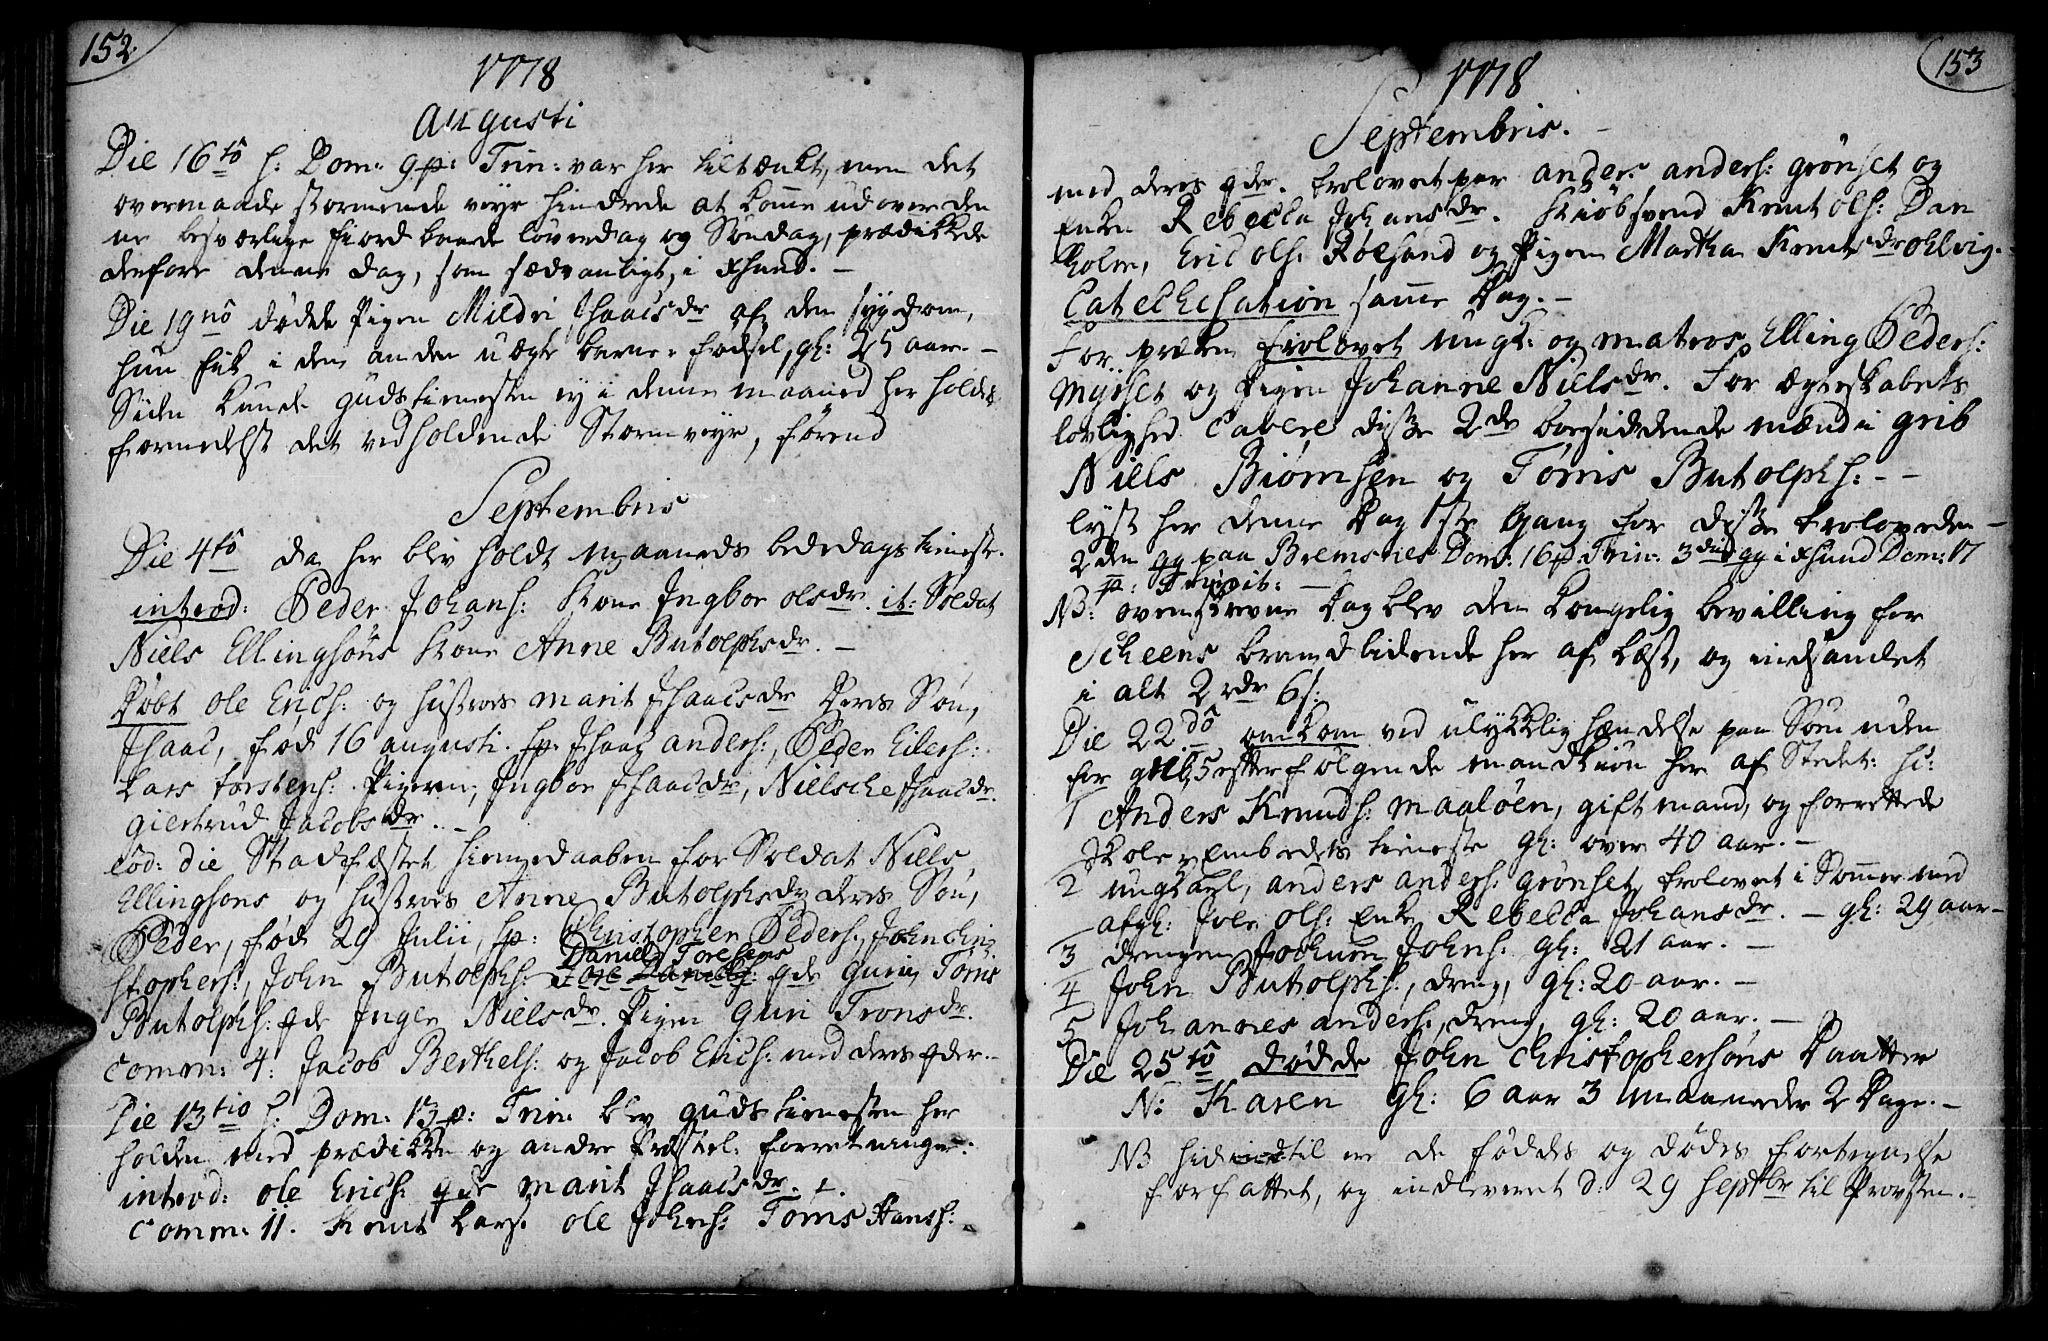 152.
1778
Augusti
Die 16tô h: Dom: 9 p: Trin: var her tiltænkt, men det
overmaade stormende veyr hindrede at komme ud over den
ne besværlige fiord baade løverdag og Søndag, prædikkede
derfore denne dag, som sædvanligt, i Xhund. -
Die 19nô døde Pigen Mildri Jhaacsdr af den sygdom,
hun fik i den anden uægte barne-fødsel, gl: 25 aar. -
Siden kunde gudstienesten ey i denne maaned her holdes
formedelst det vedholdende Stormveyr, førend
Septembris
Die 4tô da her blev holdt maaneds bededags tieneste.
introd: Peder Johans: Kone Ingbor olsdr. it: Soldat
Niels Ellingsøns Kone Anne Butolphsdr. -
Døbt ole Erichs: og hustrues marit Jhaacsdr deres Søn,
Jhaac, fød 16 augusti. fp. Jhaac anders:, Peder Eilers:
Lars torstens: Pigerne, Ingbor Jhaacsdr, Nielsche Jhaacsdr.
Giertrud Jacobsdr. -
eod: die Stadfæstet hiemmedaaben for Soldat Niels
Ellingsøns og hustrues Anne Butolphsdr deres Søn,
Peder, fød 29 Julii, fp: Christopher Peders:, John Chri-
Daniel Toresens
stophers:, John Butolphs: Tore Daniels: qde Guri, Tørris
Butolphs: qde Inger Nielsdr. Pigen Guri Tronsdr.
Comm: 4. Jacob Berthels: og Jacob Erics: med deres qder. -
Die 13tio h: Dom: 13 p: Trin: blev gudstienesten her
holden med prædikken og andre præstel: forretninger.
introd: ole Erichs: qde marit Jhaacsdr. 1.
Comm: 11. Knut Lars: ole Johns: Tørris Hans:
153
1778
Septembris. -
med deres qder. trolovet par anders anders: grønset og
Enken Rebecka Johansdr. Kiøbsvend Knut ols: Dan
holm, Eric ols: Røesand og Pigen Martha Knutsdr ohlvig. -
Catechesation samme Dag. -
For præken trolovet ungk: og matros Elling Peders:
Myhset og Pigen Johanne Nielsdr. For ægteskabets
lovlighed Cavere disse 2de boesiddende mænd i grib
Niels Biørnsen og Tørris Butolphs: - -
lyst her denne Dag 1ste Gang for disse trolovede -
2den gg paa Bremsnes Dom: 16 p Trin: 3die gg i Xhund Dom: 17
p: Trinit: -
NB: ovenskrevne Dag blev den Kongelig bevilling for
Scheens brandlidende her aflæst, og indsamlet
i alt 2 rdr 6 s:
Die 22dô omkom ved ulykkelig hændelse paa Søen uden
for grib, 5 efterfølgende mandkiøn her af Stedet: sc:
1 Anders Knuds: maaløen, gift mand, og forrettede
Skole-Embedets tieneste gl: over 40 aar. -
2 ungkarl, anders anders: grønset, trolovet i Sommer med
afgl: Joen ols: Enke Rebecca Johansdr. - gl: 29 aar -
3 drengen Jochum Johns: gl: 21 aar. -
4 John Butolphs:, dreng, gl: 20 aar. -
5 Johannes anders:, dreng, gl: 20 aar. -
Die 25tô døde John Christophersøns Daatter
N: Karen gl: 6 aar 3 maaneder 2 Dage. -
NB hidindtil er de føddes og dødes fortegnelse
forfattet, og indleveret d: 29 Septbr til Provsten. -